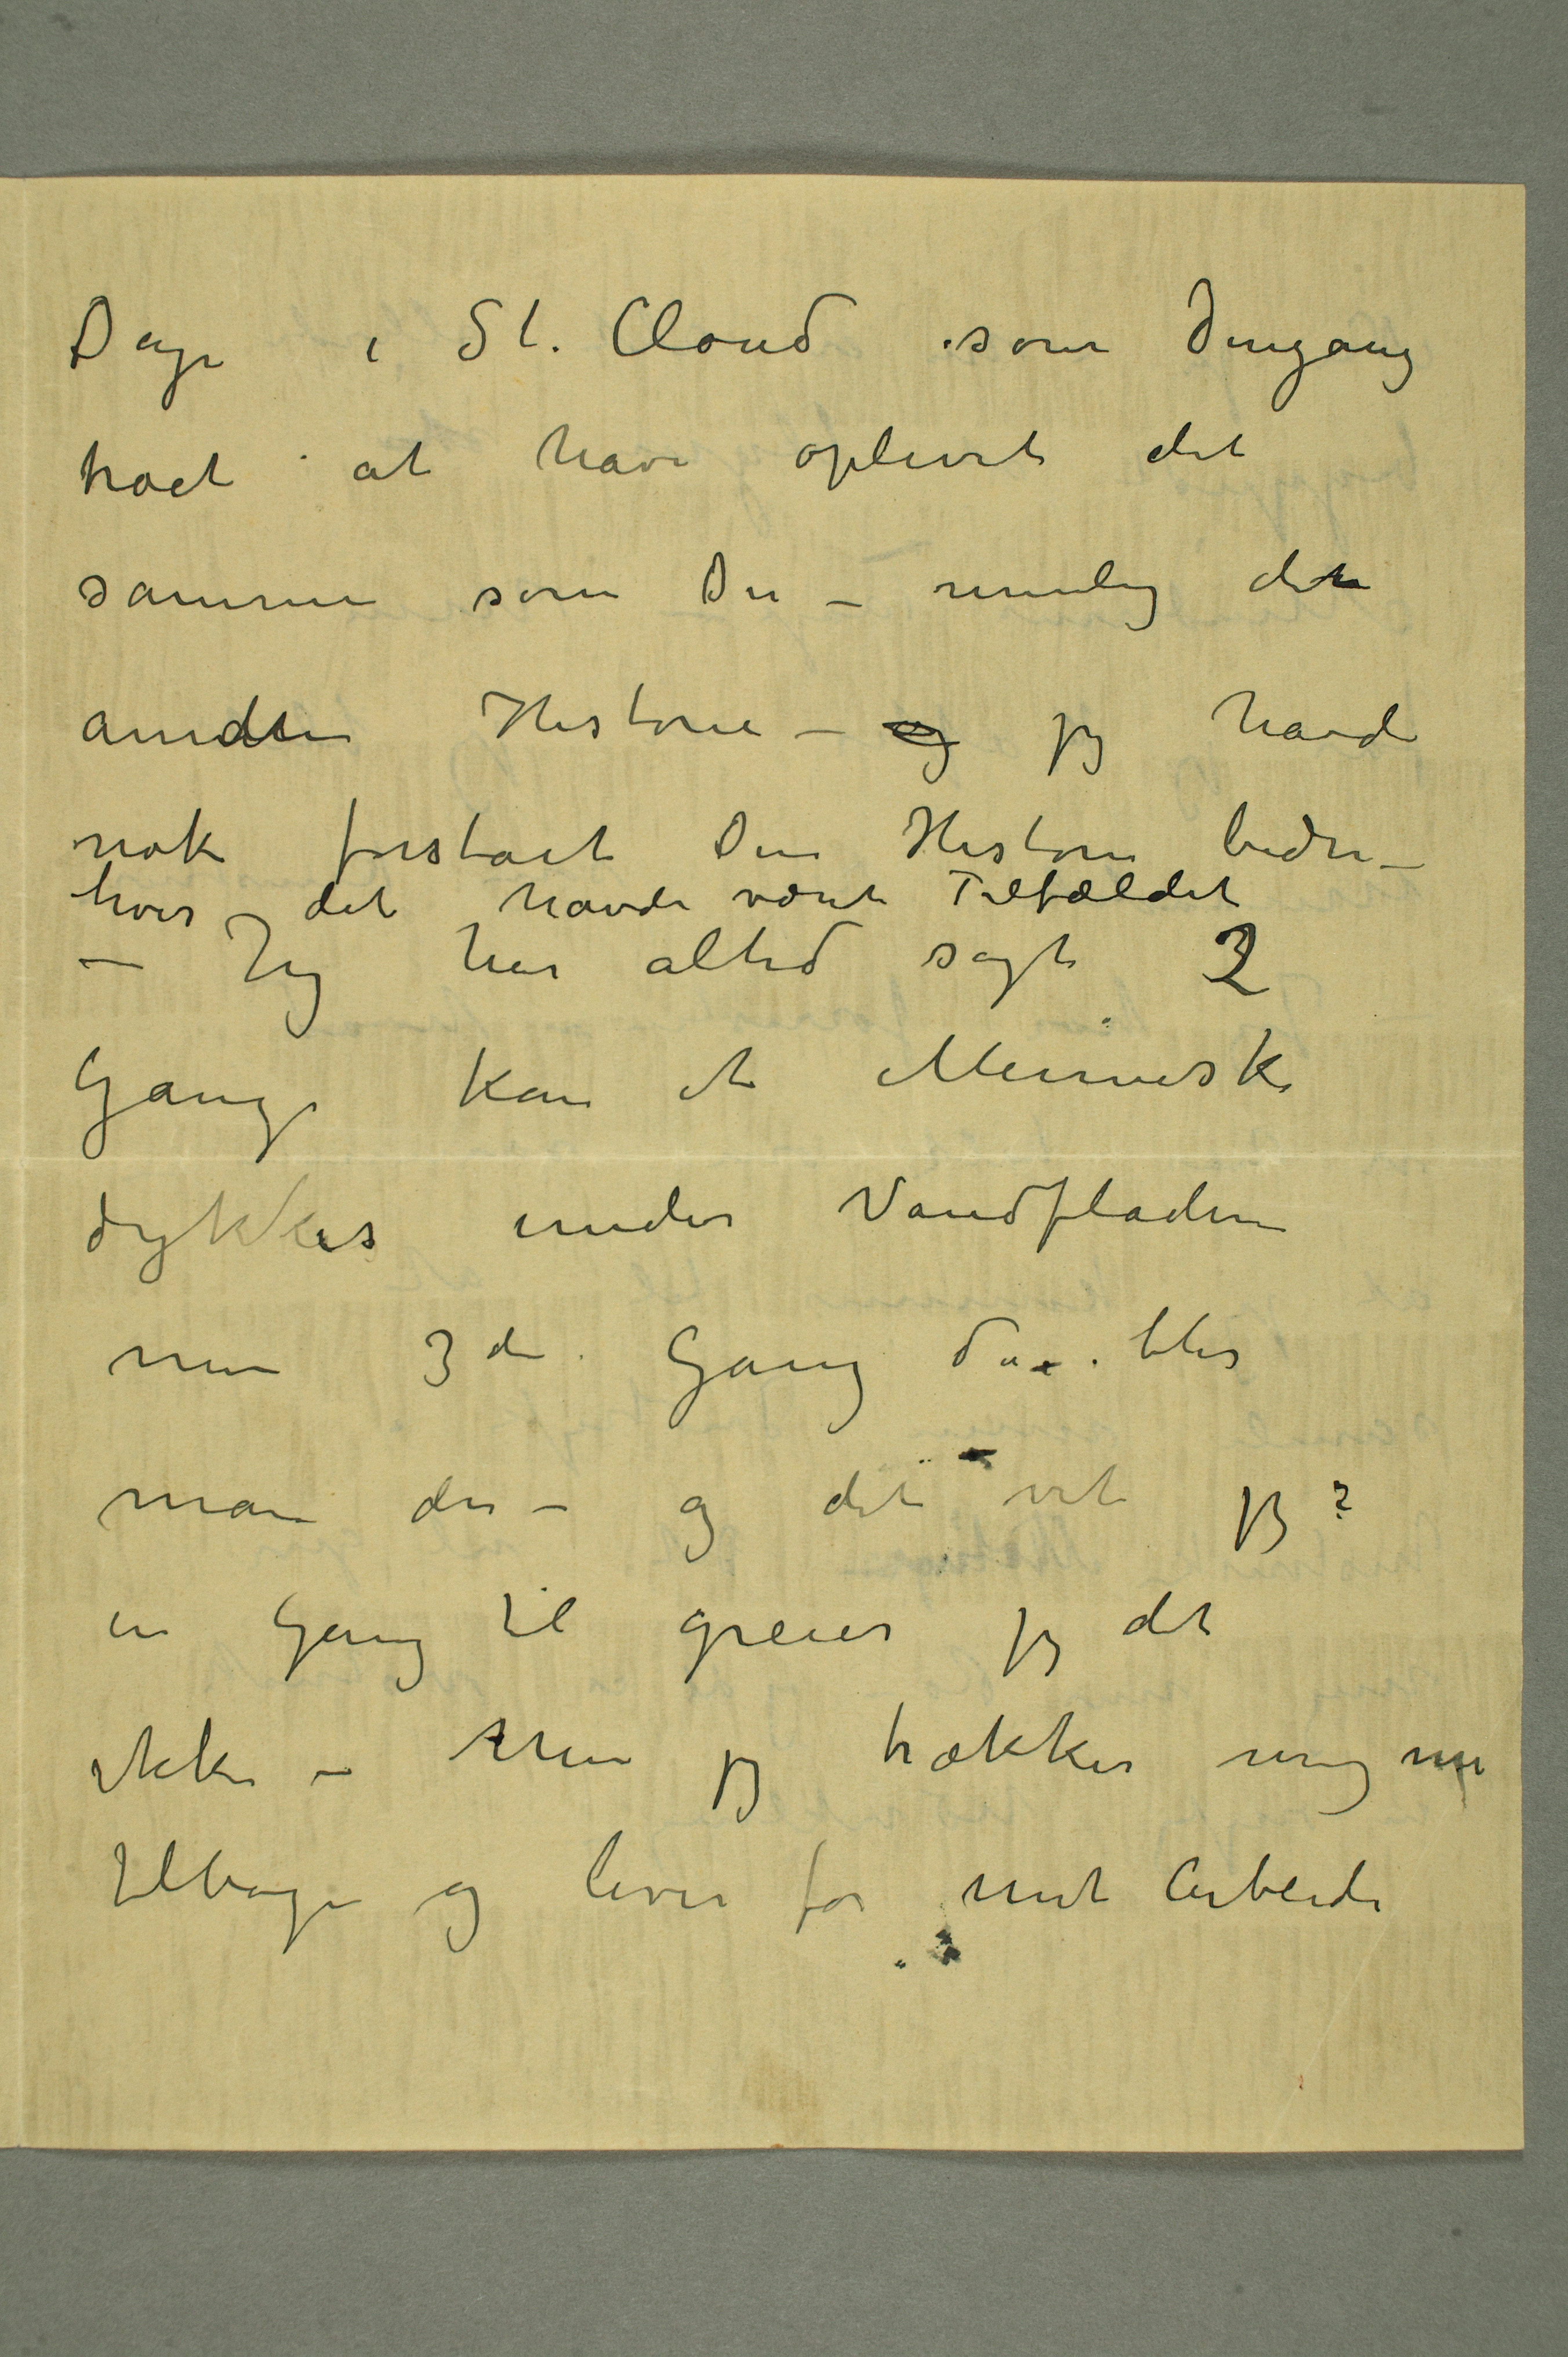 Dage i St. Cloud som dengang
troet at have oplevet det
samme som Du – nemlig den
anden Historie – og jeg havde
nok forstaaet Din Historie bedre –
hvis det havde været Tilfældet
– Jeg har altid sagt 2
Gange kan et Menneske
dykkes under Vandfladen
men 3de Gang da blir
man der – og det vet jeg?
en Gang til greier jeg det
ikke – Men jeg trækker mig nu
tilbage og lever for mit Arbeide